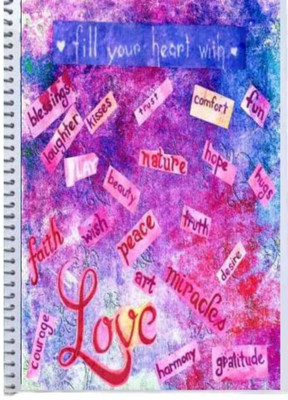 fill your heart with
blessings
laughter
kisses
trust
comfort
fun
nature
hope
hugs
beauty
faith
wish
peace
truth
desire
art
miracles
Love
courage
harmony
gratitude